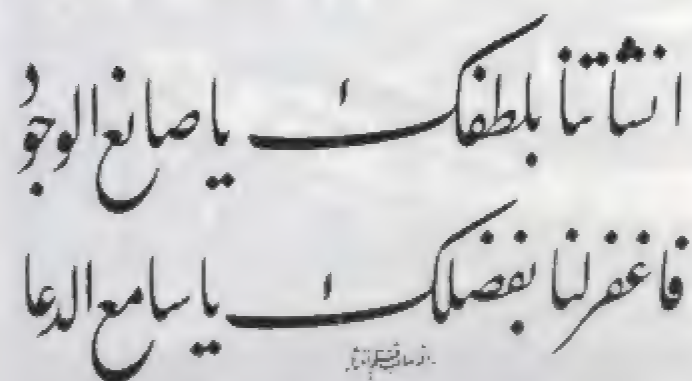 انشأتنا بلطفك يا صانع الوجود
فاغفر لنا بفضلك يا سامع الدعا